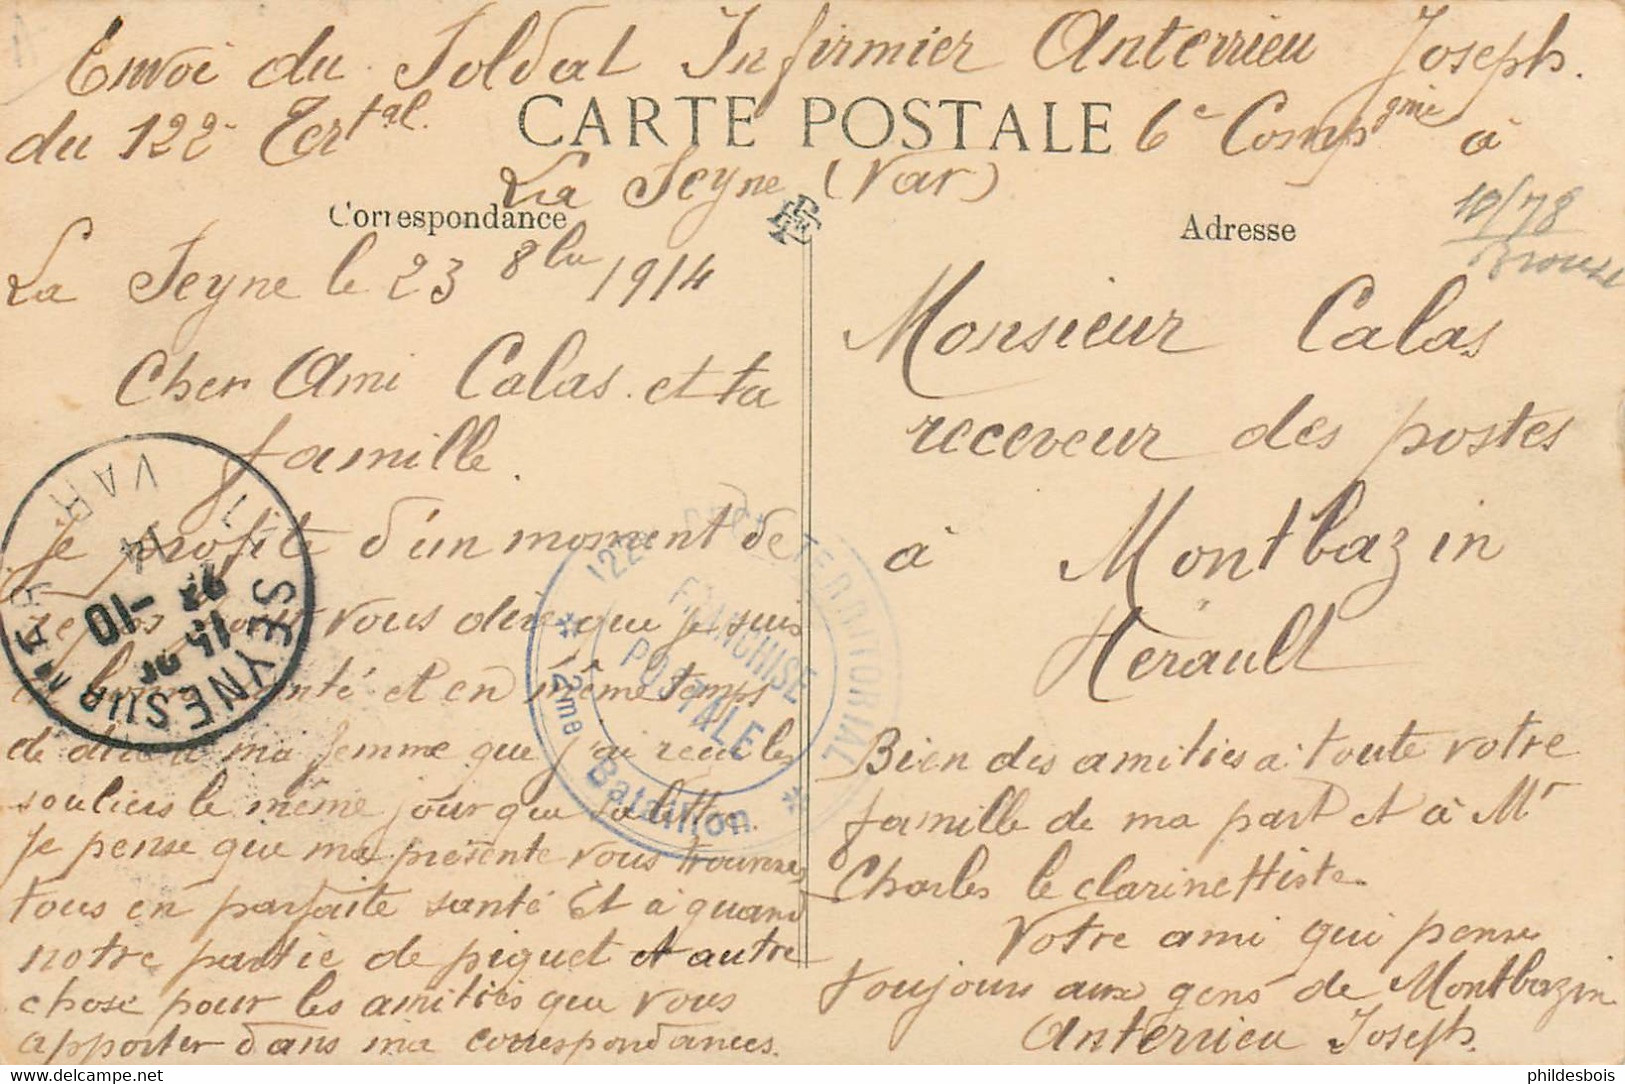 Envoi du Soldat Infirmier Anterrieu Joseph.
du 122e Ter^tal. 6e Comp^gnie à
CARTE POSTALE
La Seyne (Var)
Correspondance
La Seyne le 23 8bre 1914
Cher Ami Calas et ta
famille.
Je profite d'un moment de
repos pour vous dire que je suis
en bonne santé et en même temps
de dire à ma femme que j'ai reçu les
souliers le même jour que sa lettre.
Je pense que ma présente vous trouvera
tous en parfaite santé Et à quand
notre partie de piquet et autre
chose pour les amitiés que vous
apporter dans ma correspondances.
Adresse
10/78
Monsieur Calas
receveur des postes
à Montbazin
Herault
Bien des amitiés à toute votre
famille de ma part et à Mr
Charles le clarinettiste.
Votre ami qui pense
toujours aux gens de Montbazin
Anterrieu Joseph.
LA SEYNE SUR MER
VAR
15
23 -10
14
122e REGt TERRITORIAL
FRANCHISE
POSTALE
* 2me Bataillon *
phildesbois